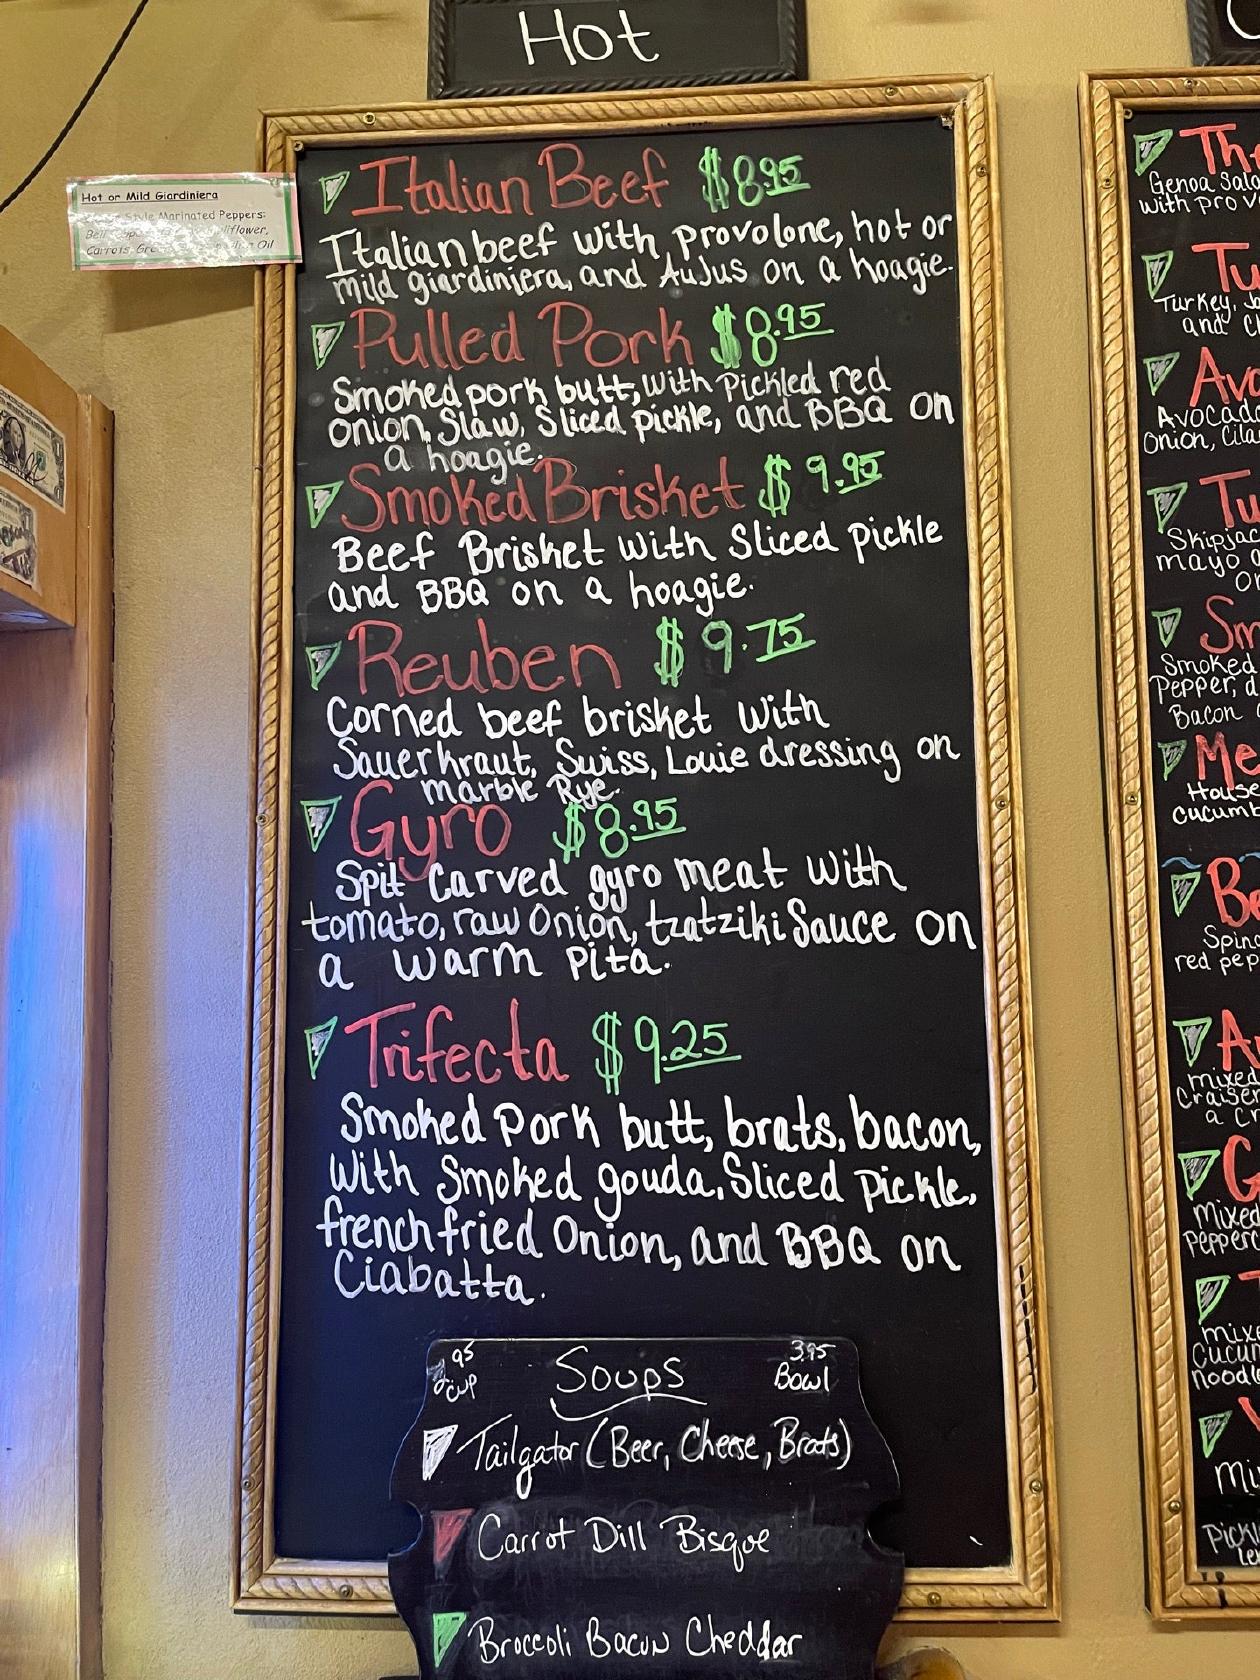 Hot
Hot or Mild Giardiniera
Style Marinated Peppers:
Carrots, Oil
Italian Beef $8.95
Italian beef with provolone, hot or
mild giardiniera, and AuJus on a hoagie.
Pulled Pork $8.95
Smoked pork butt, with Pickled red
onion, Slaw, Sliced pickle, and BBQ on
a hoagie.
Smoked Brisket $9.95
Beef Brisket with Sliced pickle
and BBQ on a hoagie.
Reuben $9.75
Corned beef brisket with
Sauerkraut, Swiss, Louie dressing on
marble Rye.
Gyro $8.95
Spit Carved gyro meat with
tomato, raw Onion, tzatziki Sauce on
a warm pita.
Trifecta $9.25
Smoked Pork butt, brats, bacon,
with Smoked gouda, Sliced Pickle,
french fried Onion, and BBQ on
Ciabatta.
.95 cup Soups 3.95 Bowl
Tailgator (Beer, Cheese, Brats)
Carrot Dill Bisque
Broccoli Bacon Cheddar
Genoa
with
Turkey,
and
Onion,
Skipjac
mayo
Smoked
Pepper,
Bacon
House
cucumb
red pep
mixed
a
mixed
noodle